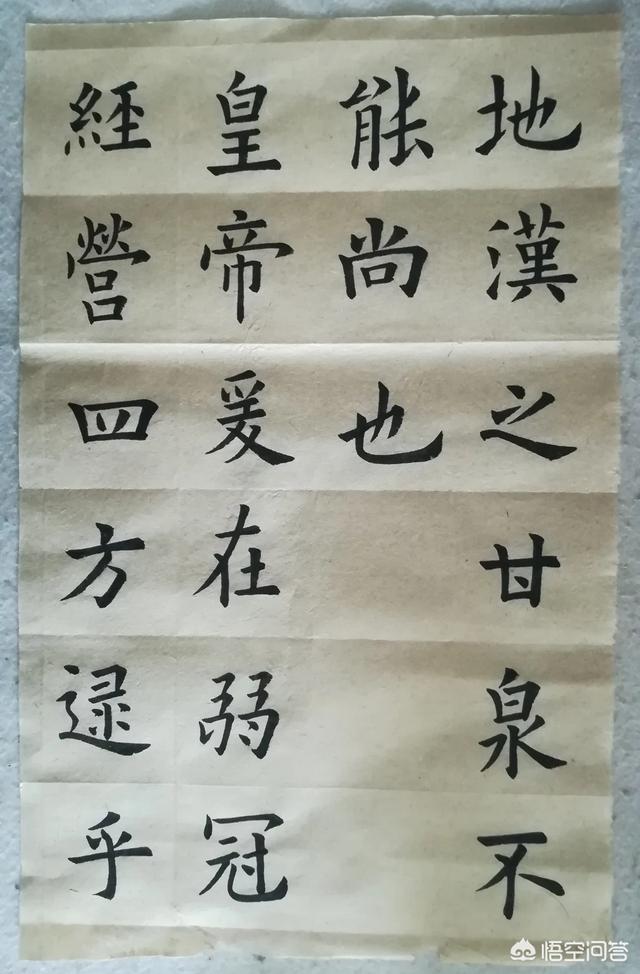 地漢之甘泉不
能尚也
皇帝爰在弱冠
經營四方逮乎
悟空问答